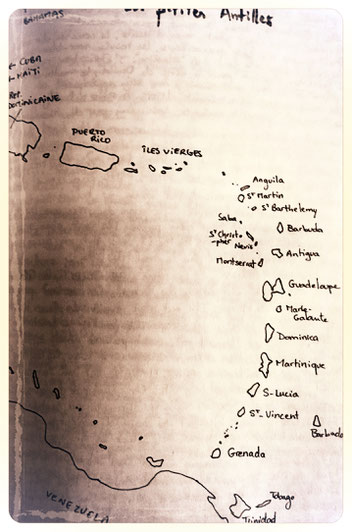 petites Antilles
BAHAMAS
← CUBA
← HAÏTI
REP.
DOMINICAINE
PUERTO
RICO
ÎLES VIERGES
Anguila
Sᵗ Martin
Sᵗ Barthelemy
Saba
Barbuda
Sᵗ Christo
pher
Nevis
Antigua
Montserrat
Guadeloupe
Marie-
Galante
Dominica
Martinique
S-Lucia
Sᵗ-Vincent
Barbado
Grenada
Tobago
Trinidad
VENEZUELA